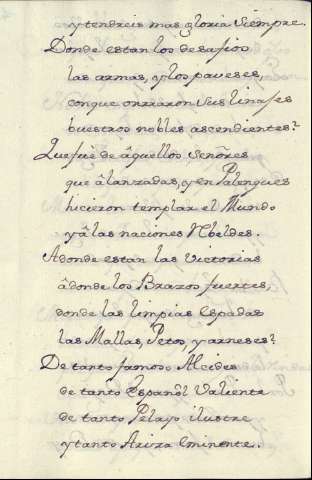 y tendreis mas gloria siempre.
Donde estan los desafios
las armas, y los paveses,
con que onrraron sus linajes
buestros nobles ascendientes?
Que fuè de âquellos Señores
que â lanzadas, y en Palengues
hicieron templar el Mundo
y â las naciones Rbeldes.
A donde estan las Victorias
âdonde los Brazos fuertes,
donde las limpias Espadas
las Mallas, Petos, y arneses?
De tanto famoso Alcides
de tanto Español Valiente
de tanto Pelayo ilustre
y tanto Ariza eminente.